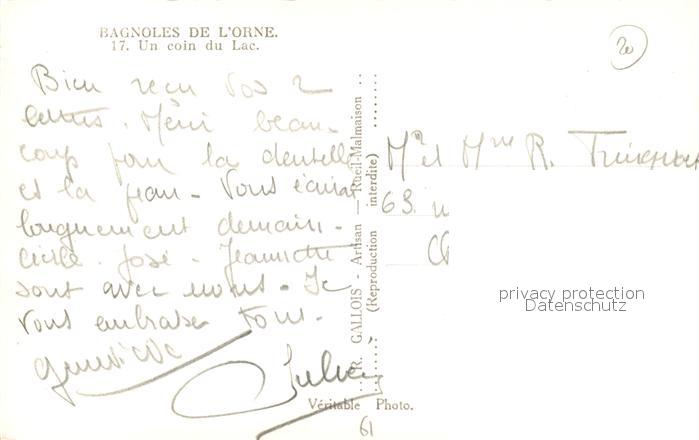 BAGNOLES DE L'ORNE.
17. Un coin du Lac.
20
Bien reçu vos 2
lettres. Merci beau-
coup pour la dentelle
et la . Vous écrirai
longuement demain.
Cécile. José. Jeannette
sont avec nous. Je
vous embrasse tous.
Julien
R. GALLOIS - Artisan — Rueil-Malmaison
(Reproduction interdite)
Mr et Mme R.
63.
privacy protection
Datenschutz
Véritable Photo.
61